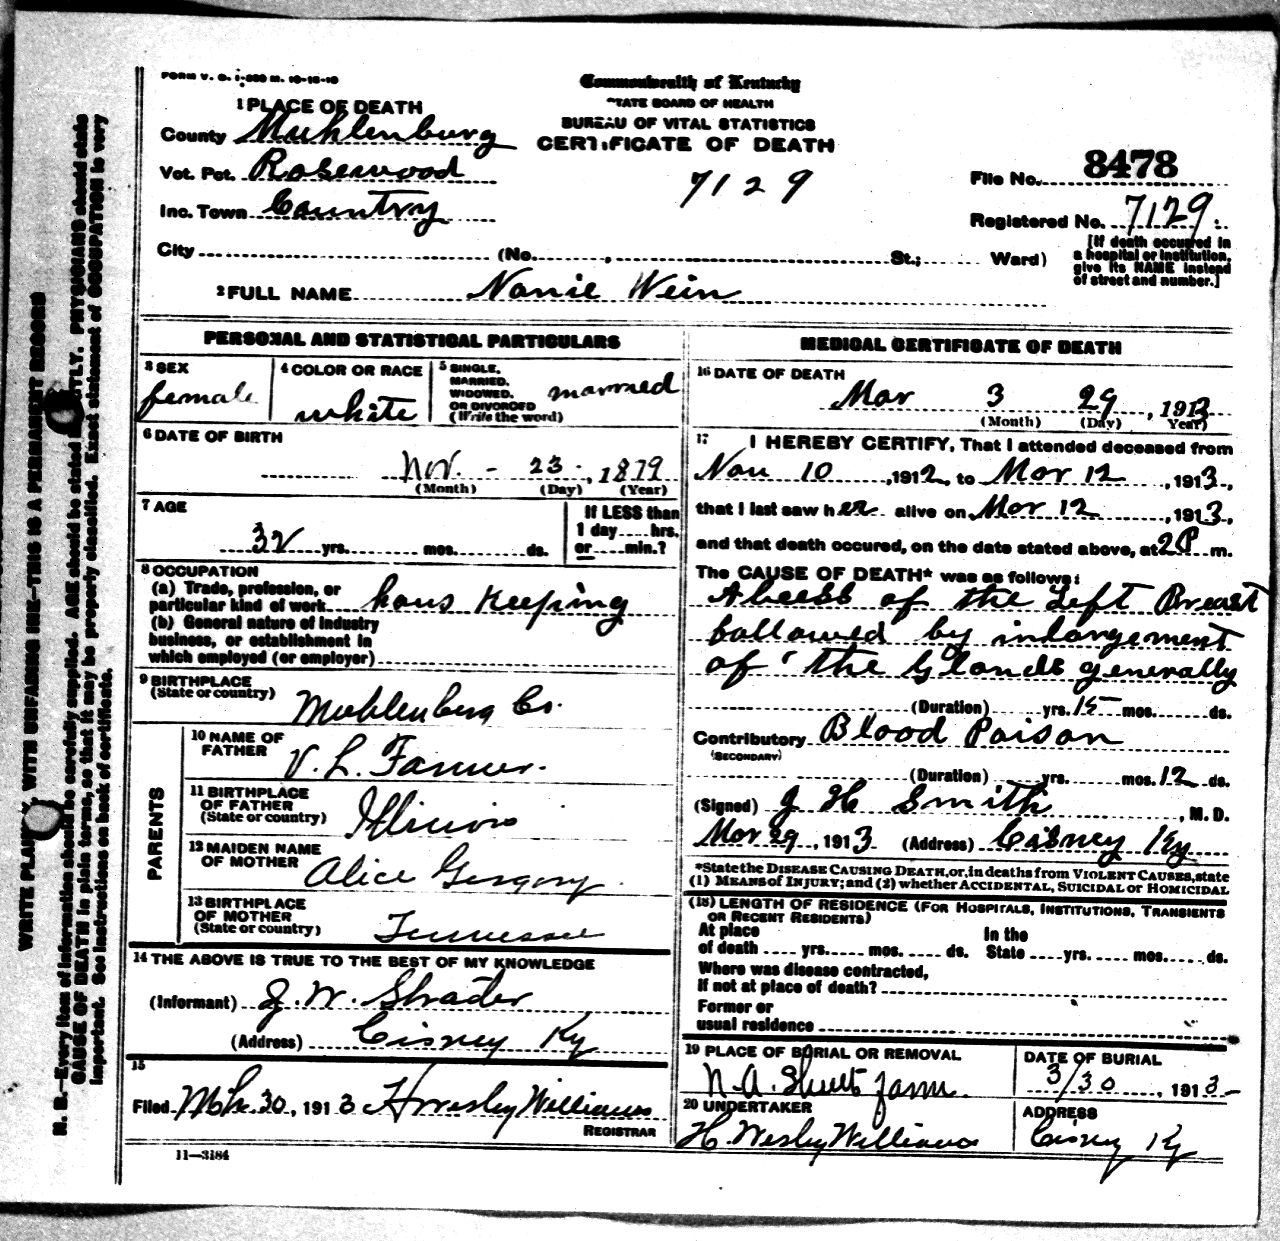 FORM V. S. 1-350 M. 10-15-10
Commonwealth of Kentucky
STATE BOARD OF HEALTH
BUREAU OF VITAL STATISTICS
CERTIFICATE OF DEATH
1 PLACE OF DEATH
County Muhlenburg
Vot. Pct. Rosewood
Inc. Town Country
City (No. , St.; Ward)
7129
File No. 8478
Registered No. 7129
[If death occurred in
a hospital or institution,
give its NAME instead
of street and number.]
2 FULL NAME Nanie Wein
PERSONAL AND STATISTICAL PARTICULARS
3 SEX
female
4 COLOR OR RACE
white
5 SINGLE,
MARRIED,
WIDOWED,
OR DIVORCED
(Write the word)
married
6 DATE OF BIRTH
Nov. - 23. , 1879
(Month) (Day) (Year)
7 AGE
32 yrs. mos. ds.
If LESS than
1 day hrs.
or min.?
8 OCCUPATION
(a) Trade, profession, or
particular kind of work hous Keeping
(b) General nature of Industry
business, or establishment in
which employed (or employer)
9 BIRTHPLACE
(State or country)
Muhlenberg Co.
PARENTS
10 NAME OF
FATHER
V. L. Farmer.
11 BIRTHPLACE
OF FATHER
(State or country)
Illinois
12 MAIDEN NAME
OF MOTHER
Alice Gregory
13 BIRTHPLACE
OF MOTHER
(State or country)
Tennessee
14 THE ABOVE IS TRUE TO THE BEST OF MY KNOWLEDGE
(Informant) J. W. Shrader
(Address) Cisney Ky
15
Filed 30, 1913 H Wesley Williams
REGISTRAR
11—3184
MEDICAL CERTIFICATE OF DEATH
16 DATE OF DEATH
Mar 3 29, 1913
(Month) (Day) Year)
17 I HEREBY CERTIFY, That I attended deceased from
Nov 10 , 1912, to Mar 12 , 1913,
that I last saw her alive on Mar 12 , 1913,
and that death occured, on the date stated above, at 2 P m.
The CAUSE OF DEATH* was as follows:
Abcess of the Left Breast
follawed by inlargement
of the Glands generally
(Duration) yrs. 15 mos. ds.
Contributory Blood Poison
(SECONDARY)
(Duration) yrs. mos. 12 ds.
(Signed) J H Smith , M. D.
Mar 29, 1913 (Address) Cisney Ky
*State the DISEASE CAUSING DEATH, or, in deaths from VIOLENT CAUSES, state
(1) MEANS of INJURY; and (2) whether ACCIDENTAL, SUICIDAL or HOMICIDAL
(18) LENGTH OF RESIDENCE (FOR HOSPITALS, INSTITUTIONS, TRANSIENTS
OR RECENT RESIDENTS)
At place In the
of death yrs. mos. ds. State yrs. mos. ds.
Where was disease contracted,
If not at place of death?
Former or
usual residence
19 PLACE OF BURIAL OR REMOVAL
N. A. farm.
DATE OF BURIAL
3/30 , 1913
20 UNDERTAKER
H. Wesley Williams
ADDRESS
Cisney Ky
N. B.—Every item of information should be carefully supplied. AGE should be stated EXACTLY. PHYSICIANS should state
CAUSE OF DEATH in plain terms, so that it may be properly classified. Exact statement of OCCUPATION is very
important. See instructions on back of certificate.
WRITE PLAINLY, WITH UNFADING INK—THIS IS A PERMANENT RECORD